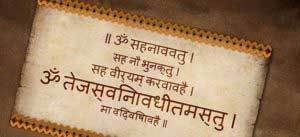 ॥ ॐ सहनाववतु ।
सह नौ भुनक्तु ।
सह वीर्यम् करवावहै ।
ॐ तेजस्वनिावधीतमस्तु ।
मा वद्विषिावहै ॥